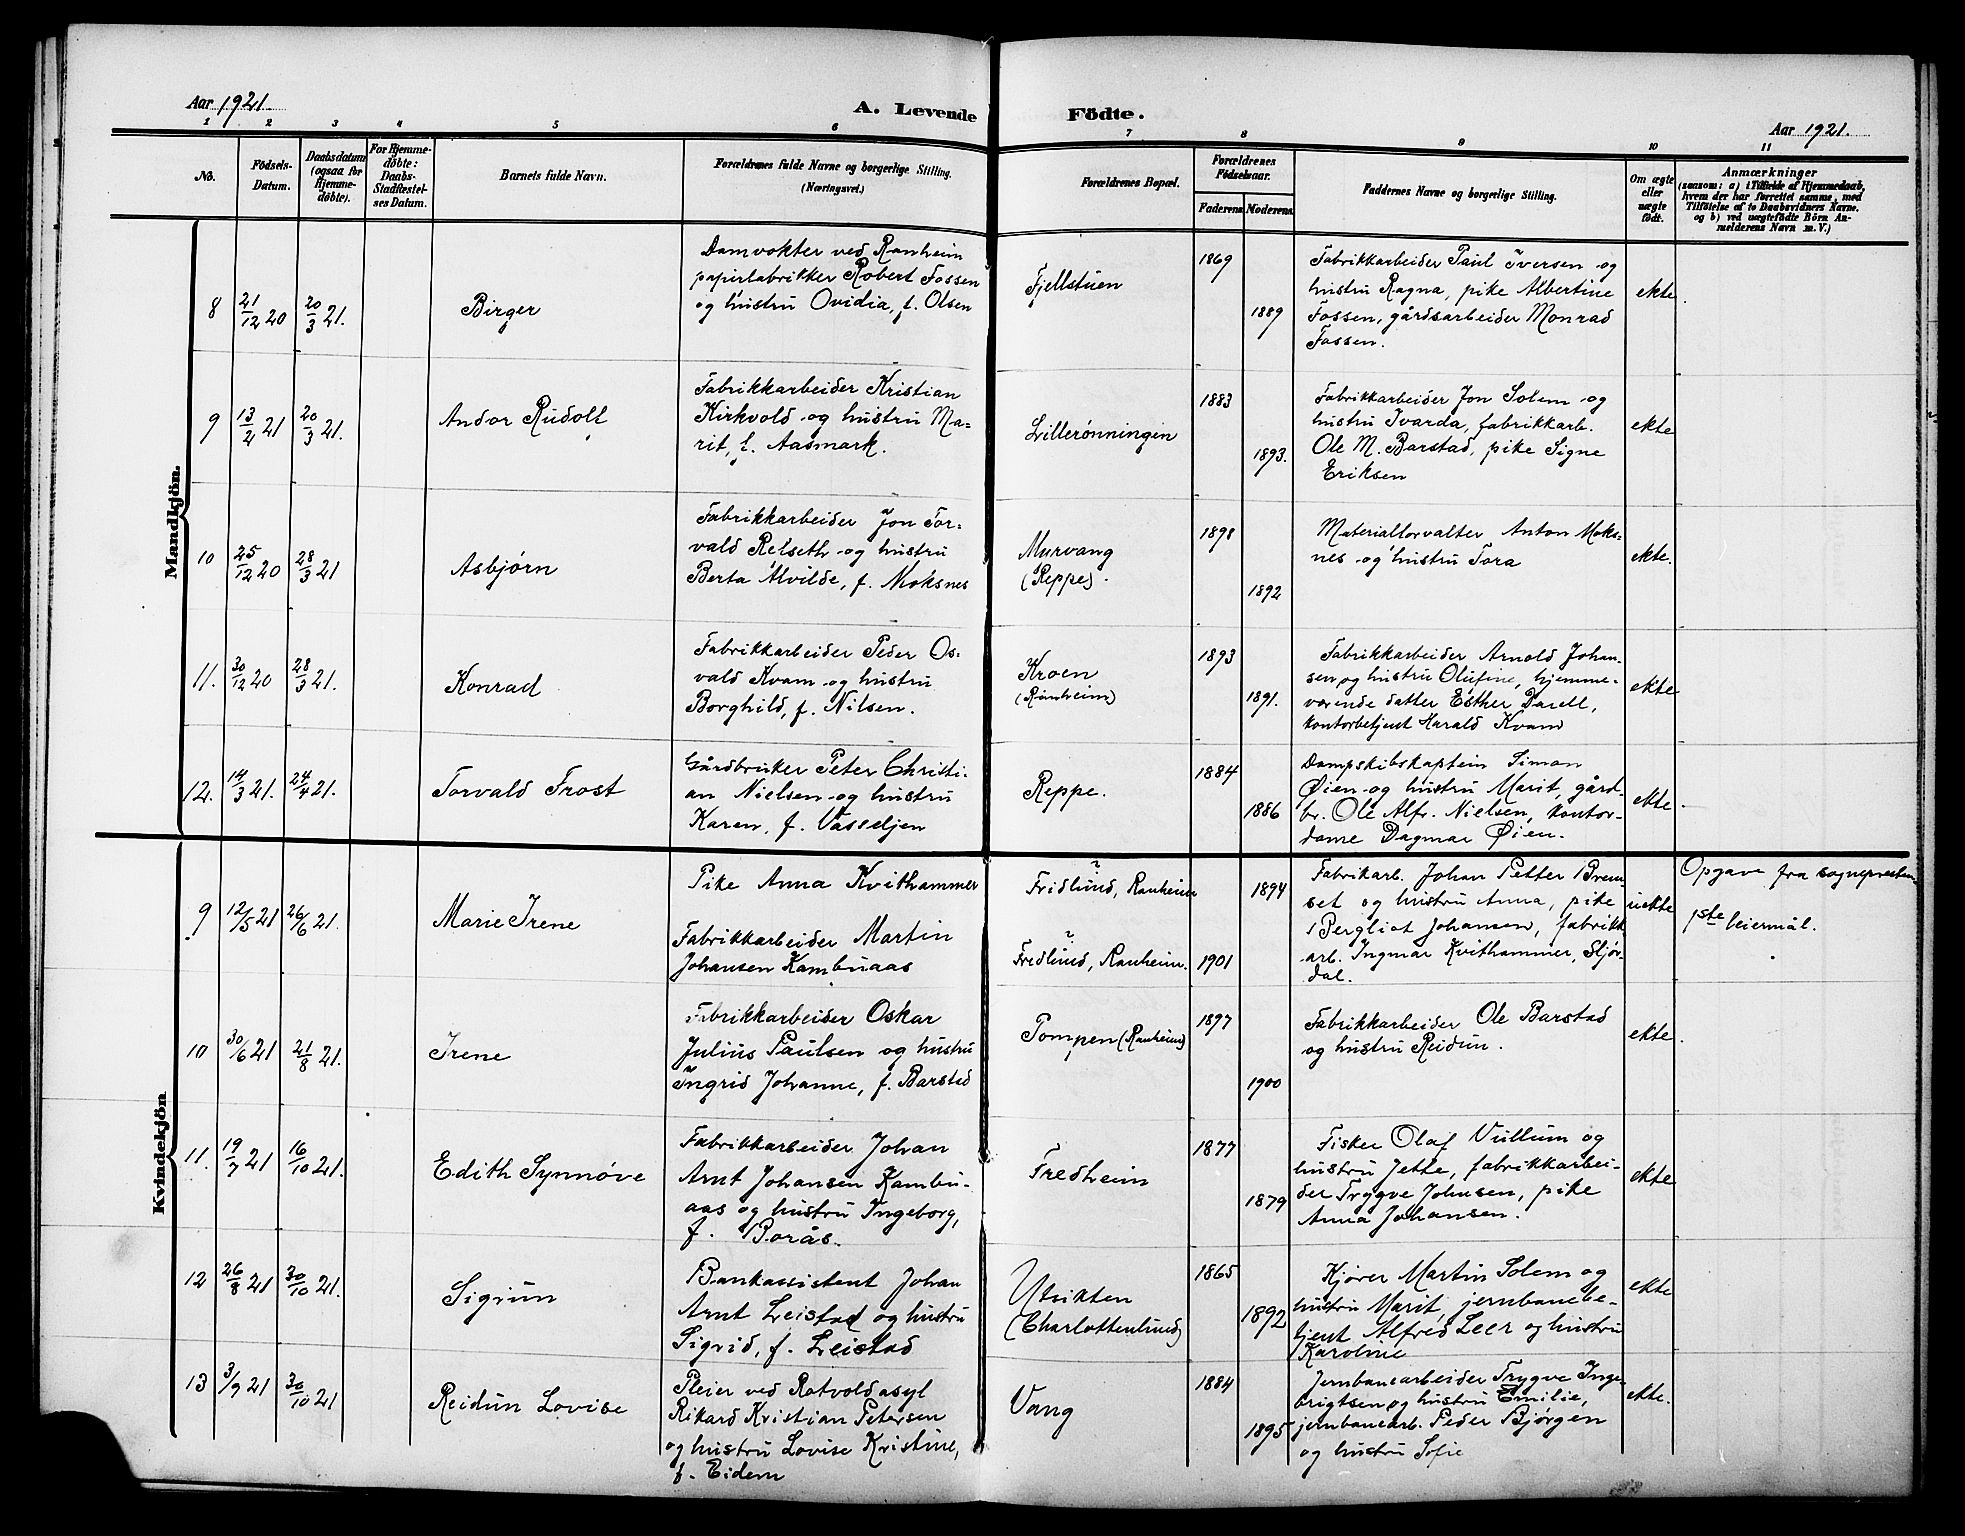 Aar 1921.
A. Levende Födte.
Aar 1921.
1 2 3 4 5 6 7 8 9 10 11
No.
Födsels-
Datum.
Daabsdatum
(ogsaa for
Hjemme-
döbte).
For Hjemme-
döbte:
Daabs-
Stadfæstel-
ses Datum.
Barnets fulde Navn.
Forældrenes fulde Navne og borgerlige Stilling.
(Næringsvei.)
Forældrenes Bopæl.
Forældrenes
Födselsaar.
Faderens.
Moderens.
Faddernes Navne og borgerlige Stilling.
Om ægte
eller
uægte
födt.
Anmærkninger
(saasom: a) i Tilfælde af Hjemmedaab,
hvem der har forrettet samme, med
Tilföielse af to Daabsvidners Navne.
og b) ved uægtefödte Börn An-
melderens Navn m. V.)
Mandkjön.
8
21/12 20
20/3 21.
Birger
Damvokter ved Ranheim
papirfabrikker Robert Fossen
og hustru Ovidia, f. Olsen
Fjellstuen
1869
1889
Fabrikkarbeider Paul Iversen og
hustru Ragna, pike Albertine
Fossen, gårdsarbeider Monrad
Fossen.
ekte.
9
13/2 21
20/3 21.
Andor Rudolf
Fabrikkarbeider Kristian
Kirkvold og hustru Ma-
rit, f. Aasmark.
Lillerønningen
1883
1893.
Fabrikkarbeider Jon Solem og
hustru Ivarda, fabrikkarb.
Ole M. Barstad, pike Signe
Eriksen
ekte
10
25/12 20
28/3 21
Asbjørn
Fabrikkarbeider Jon Tor-
vald Relseth og hustru
Berta Alvilde, f. Moksnes
Murvang
(Reppe).
1898
1892
Materialforvalter Anton Moks-
nes og hustru Tora
ekte.
11.
30/12 20
28/3 21.
Konrad
Fabrikkarbeider Peder Os-
vald Kvam og hustru
Borghild, f. Nilsen.
Kroen
(Ranheim)
1893
1891.
Fabrikkarbeider Arnold Johan-
sen og hustru Olufine, hjemme-
værende datter Esther Darell,
kontorbetjent Harald Kvam
ekte
12.
14/3 21.
24/4 21.
Torvald Frost
Gårdbruker Peter Christi-
an Nielsen og hustru
Karen, f. Vasseljen
Reppe.
1884
1886
Dampskibskaptein Simon
Øien og hustru Marit, gård-
br. Ole Alfr. Nielsen, kontor-
dame Dagmar Øien.
ekte.
Kvindekjön
9
12/5 21
26/6 21.
Marie Irene
Pike Anna Kvithammer
Fabrikkarbeider Martin
Johansen Kambuaas
Fridlund, Ranheim
Fredlund, Ranheim.
1894
1901
Fabrikarb. Johan Petter Brem-
set og hustru Anna, pike
Bergliot Johansen, fabrikk
arb. Ingmar Kvithammer, Stjør-
dal.
uekte
Opgave fra sognepresten.
1ste leiermål.
10
30/6 21
21/8 21.
Irene
Fabrikkarbeider Oskar
Julius Paulsen og hustru
Ingrid Johanne, f. Barstad
Pompen (Ranheim)
1897
1900
Fabrikkarbeider Ole Barstad
og hustru Reidun.
ekte.
11.
19/7 21
16/10 21.
Edith Synnøve
Fabrikkarbeider Johan
Arnt Johansen Kambu-
aas og hustru Ingeborg,
f. Porås.
Fredheim
1877
1879
Fisker Olaf Vullum og
hustru Jette, fabrikkarbei-
der Trygve Johnsen, pike
Anna Johansen.
ekte
12
26/8 21
30/10 21.
Sigrun
Bankassistent Johan
Arnt Leistad og hustru
Sigrid, f. Leistad
Utsikten
(Charlottenlund)
1865
1892
Kjører Martin Solem og
hustru Marit, jernbanebe-
tjent Alfred Leer og hustru
Karoline
ekte
13
3/9 21
30/10 21
Reidun Lovise
Pleier ved Rotvold asyl
Rikard Kristian Petersen
og hustru Lovise Kristine,
f. Eidem
Vang
1884
1895
Jernbanearbeider Trygve Inge-
brigtsen og hustru Emilie,
jernbanearb. Peder Bjørgen
og hustru Sofie
ekte.